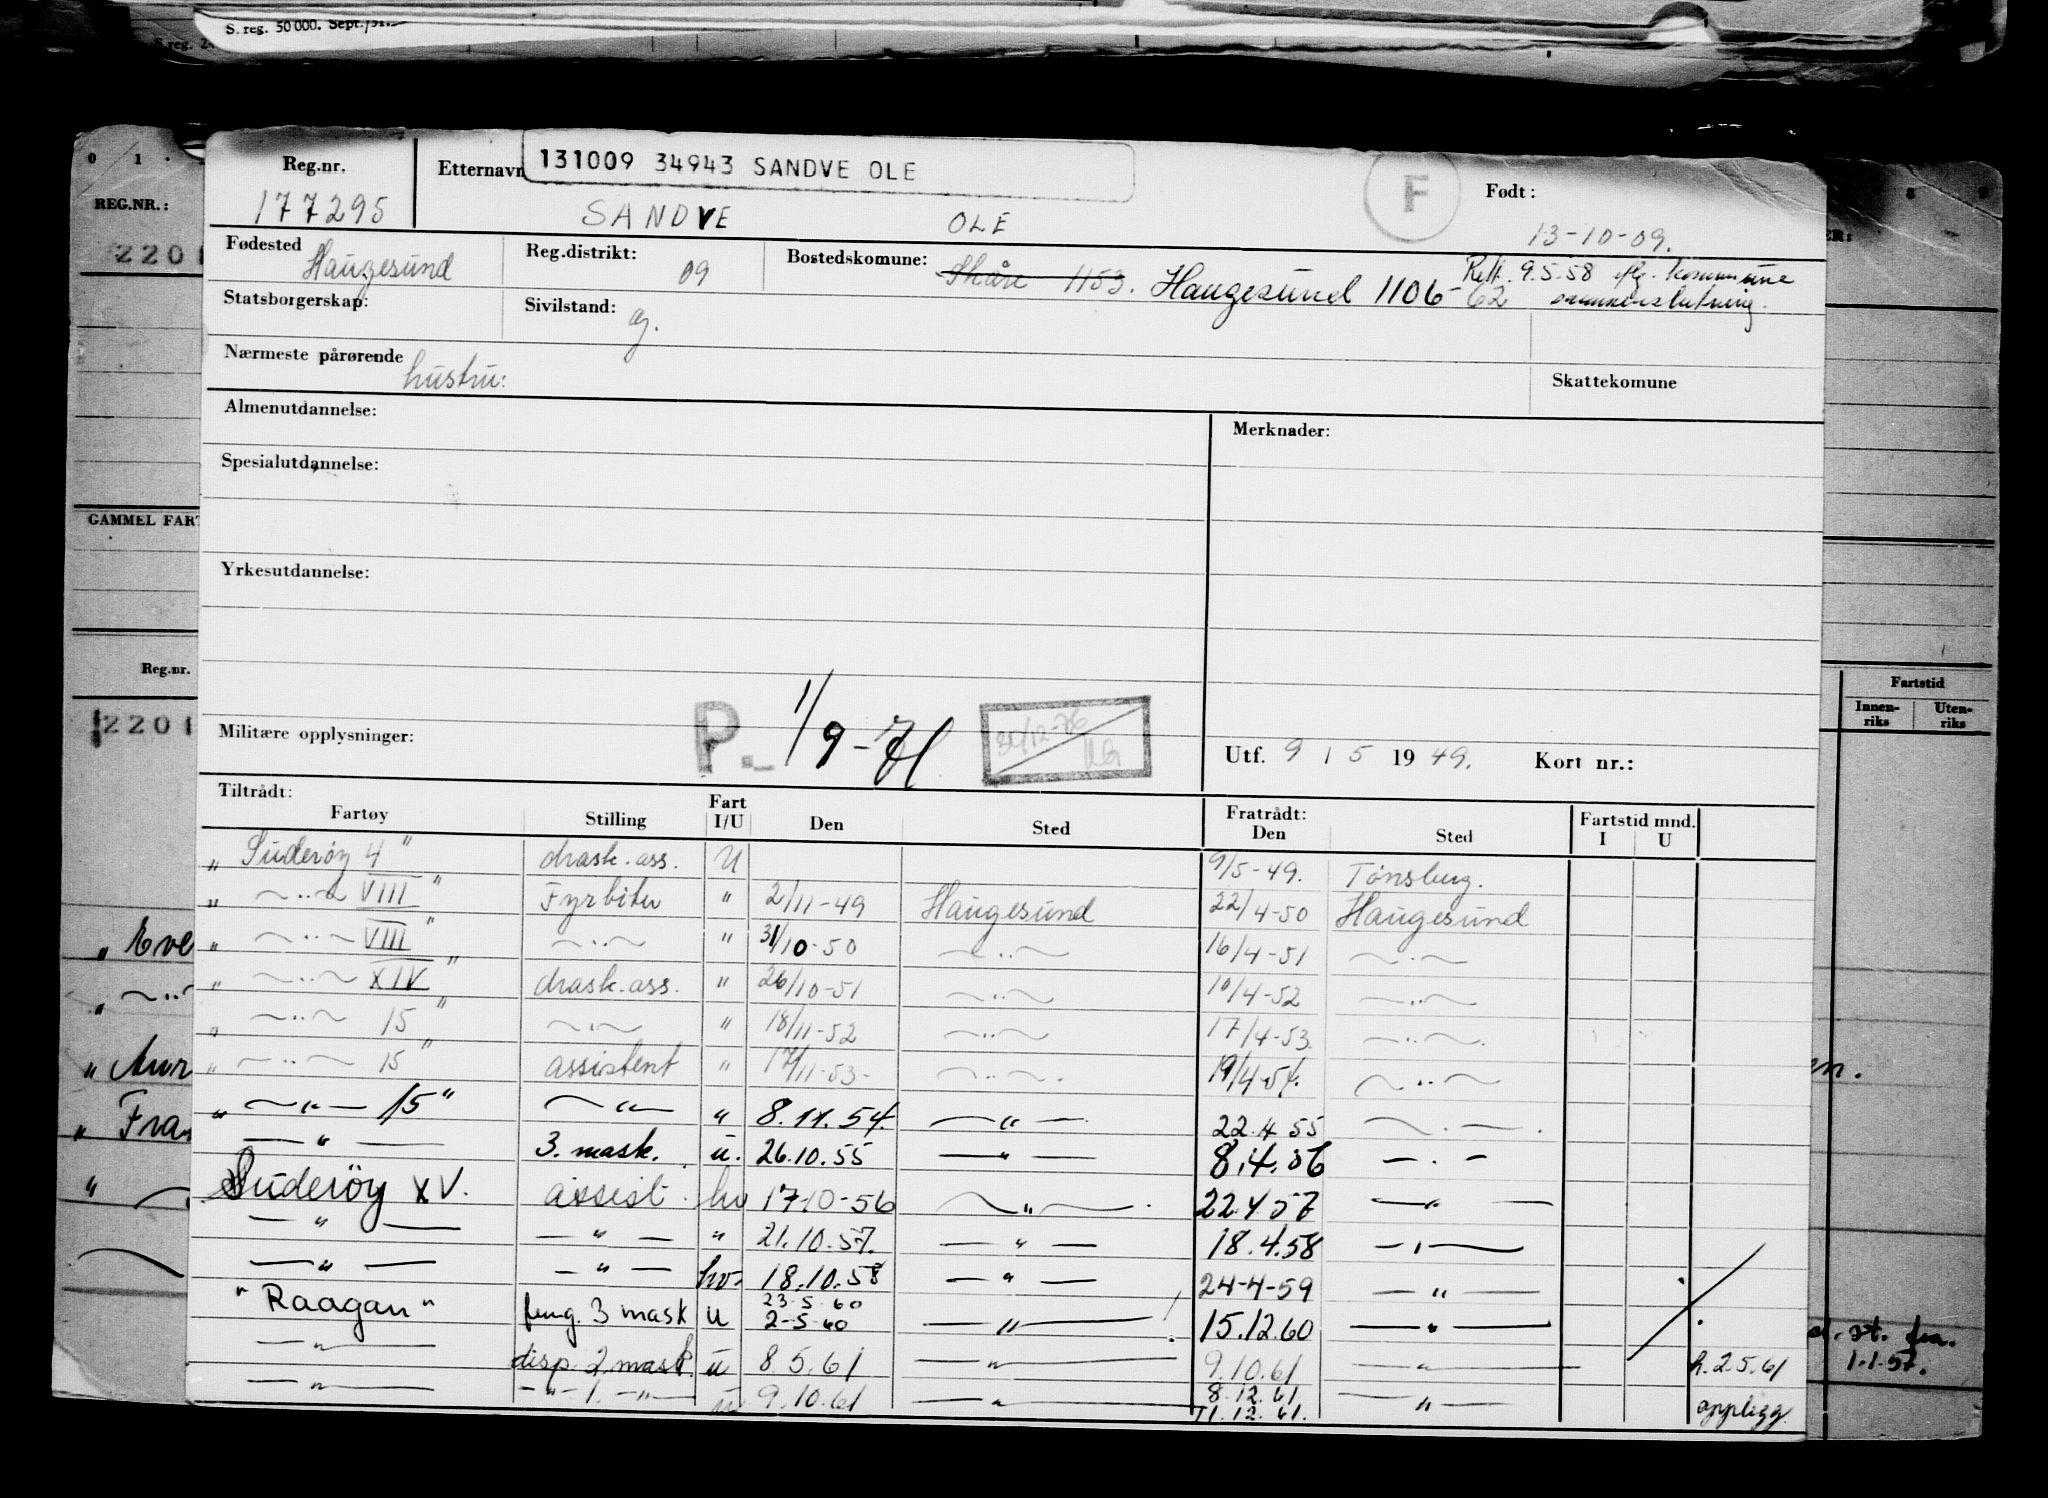 S. reg. 50 000. Sept./51.
S. reg.
0 1 .
REG.NR.:
2201
GAMMEL FART
Reg.nr.
2201
Reg.nr. Etternavn 131009 34943 SANDVE OLE F Født:
177295 SANDVE OLE 13-10-09.
Fødested Haugesund Reg.distrikt: 09 Bostedskomune: Skåre 1153. Haugesund 1106-62 Rett. 9.5.58 flg. kommune
sammenslutning.
Statsborgerskap: Sivilstand: g.
Nærmeste pårørende hustru: Skattekomune
Almenutdannelse: Merknader:
Spesialutdannelse:
Yrkesutdannelse:
Militære opplysninger: P. 1/9-71 31/12-76
Utf. 9 / 5 1949. Kort nr.:
Tiltrådt: Fratrådt: Fartstid mnd.
Fartøy Stilling Fart I/U Den Sted Den Sted I U
" Suderøy 4 " mask. ass. U 9/5-49. Tønsberg.
" —"— VIII " Fyrbøter " 2/11-49 Haugesund 22/4-50 Haugesund
" —"— VIII " —"— " 31/10-50 —"— 16/4-51 —"—
" —"— XIV " mask. ass. " 26/10-51 —"— 10/4-52 —"—
" —"— 15 " —"— " 18/11-52 —"— 17/4-53. —"—
" —"— 15 " assistent " 17/11-53- —"— 19/4-54. —"—
" —"— 15 " —"— " 8.11.54. —"— 22.4.55 —"—
—"— 3. mask. u. 26.10.55 —"— 8.4.56 —"—
Suderøy XV. assist. hv 17-10-56 —"— 22.4.57 —"—
—"— —"— " 21.10.57. —"— 18.4.58 —"—
—"— —"— hv. 18.10.58 —"— 24-4-59 —"—
" Raagan " feng. 3 mask u 23-5-60
2-5-60 —"— 15.12.60 —"—
—"— disp. 2. mask u 8 5.61 —"— 9.10.61 —"— h. 2.5.61
—"— —"— 1. —"— u 9.10.61 —"— 8.12.61
11.12.61. —"— opplegg.
Fartstid
Innen-
riks
Uten-
riks
" Eve
" Aur
" Fra
st. fra.
1.1.57.